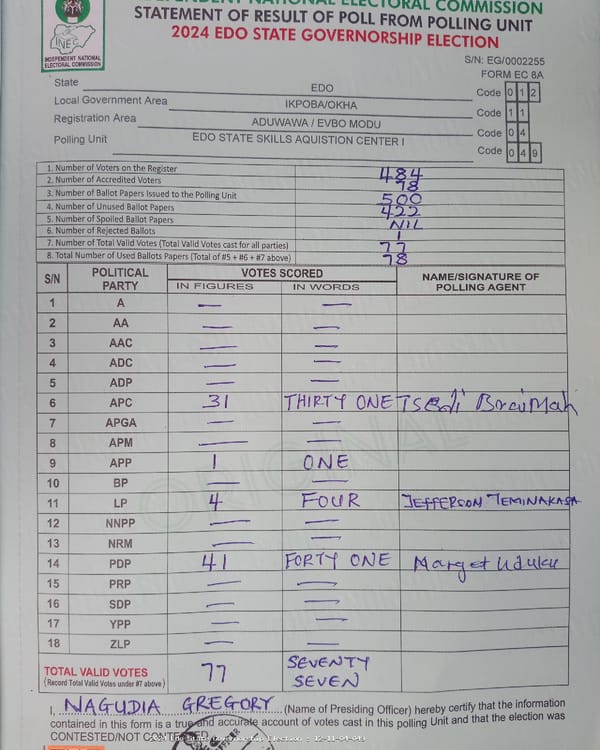 INDEPENDENT NATIONAL ELECTORAL COMMISSION
STATEMENT OF RESULT OF POLL FROM POLLING UNIT
2024 EDO STATE GOVERNORSHIP ELECTION
INEC
INDEPENDENT NATIONAL
ELECTORAL COMMISSION
S/N: EG/0002255
FORM EC 8A
State EDO Code 0 1 2
Local Government Area IKPOBA/OKHA Code 1 1
Registration Area ADUWAWA / EVBO MODU Code 0 4
Polling Unit EDO STATE SKILLS AQUISTION CENTER I Code 0 4 9
1. Number of Voters on the Register 484
2. Number of Accredited Voters 78
3. Number of Ballot Papers Issued to the Polling Unit 500
4. Number of Unused Ballot Papers 422
5. Number of Spoiled Ballot Papers NIL
6. Number of Rejected Ballots 1
7. Number of Total Valid Votes (Total Valid Votes cast for all parties) 77
8. Total Number of Used Ballots Papers (Total of #5 + #6 + #7 above) 78
S/N POLITICAL PARTY VOTES SCORED NAME/SIGNATURE OF POLLING AGENT
IN FIGURES IN WORDS
1 A — —
2 AA — —
3 AAC — —
4 ADC — —
5 ADP — —
6 APC 31 THIRTY ONE Tsedi Braimah
7 APGA — —
8 APM — —
9 APP 1 ONE
10 BP — —
11 LP 4 FOUR JEFFERSON TEMINAKASA
12 NNPP — —
13 NRM — —
14 PDP 41 FORTY ONE Marget Uduku
15 PRP — —
16 SDP — —
17 YPP — —
18 ZLP — —
TOTAL VALID VOTES 77 SEVENTY SEVEN
(Record Total Valid Votes under #7 above)
ORIGINAL
I, NAGUDIA GREGORY (Name of Presiding Officer) hereby certify that the information
contained in this form is a true and accurate account of votes cast in this polling Unit and that the election was
CONTESTED/NOT CONTESTED